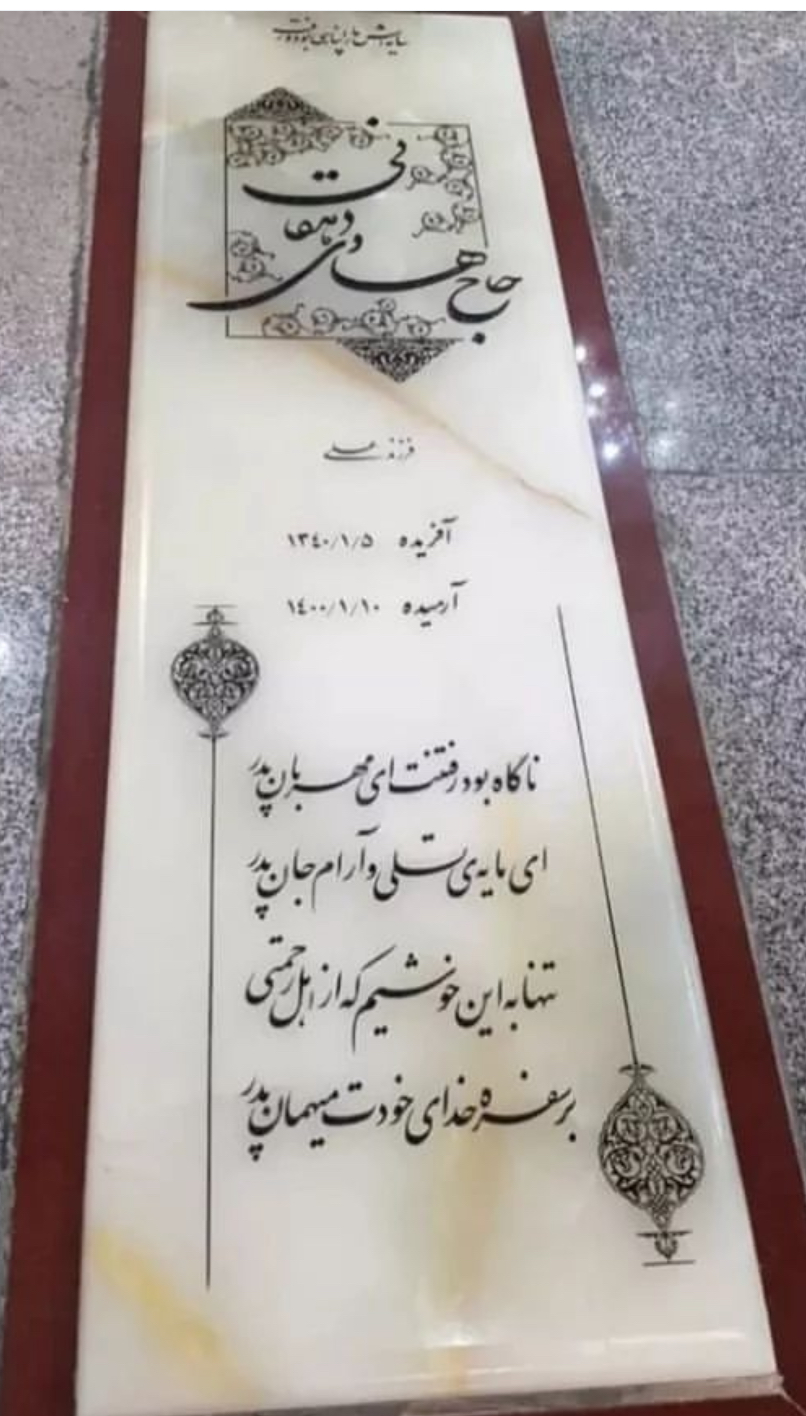 سایه‌اش ما را پناهی بود و رفت
حاج هادی دهقانی
فرزند علی
آفریده ۱۳۴۰/۱/۵
آرمیده ۱۴۰۰/۱/۱۰
ناگاه بود رفتنت ای مهربان پدر
ای مایه‌ی تسلی و آرام جان پدر
تنها به این خوشیم که از اهل رحمتی
بر سفره خدای خودت میهمان پدر